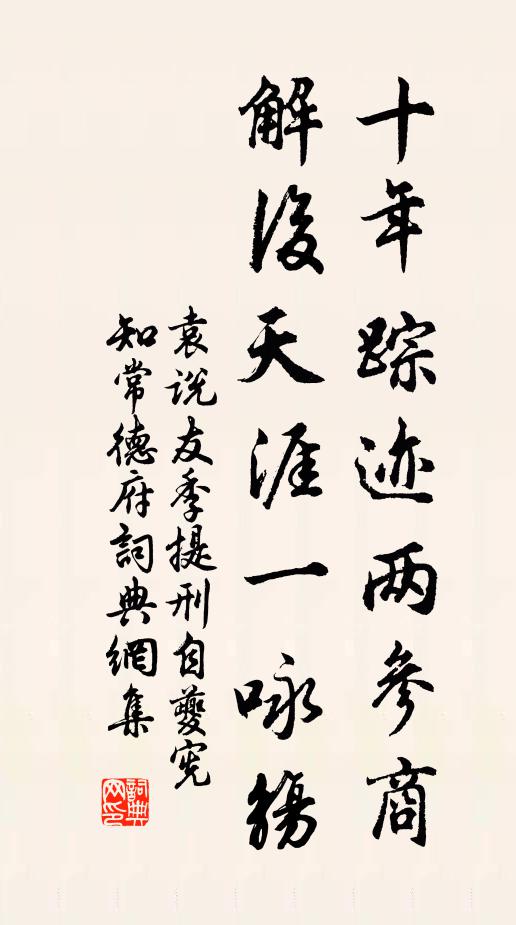 十年踪迹两參商
解後天涯一咏觴
袁说友季提刑自夔宪
知常德府詞典網集
詞典网印